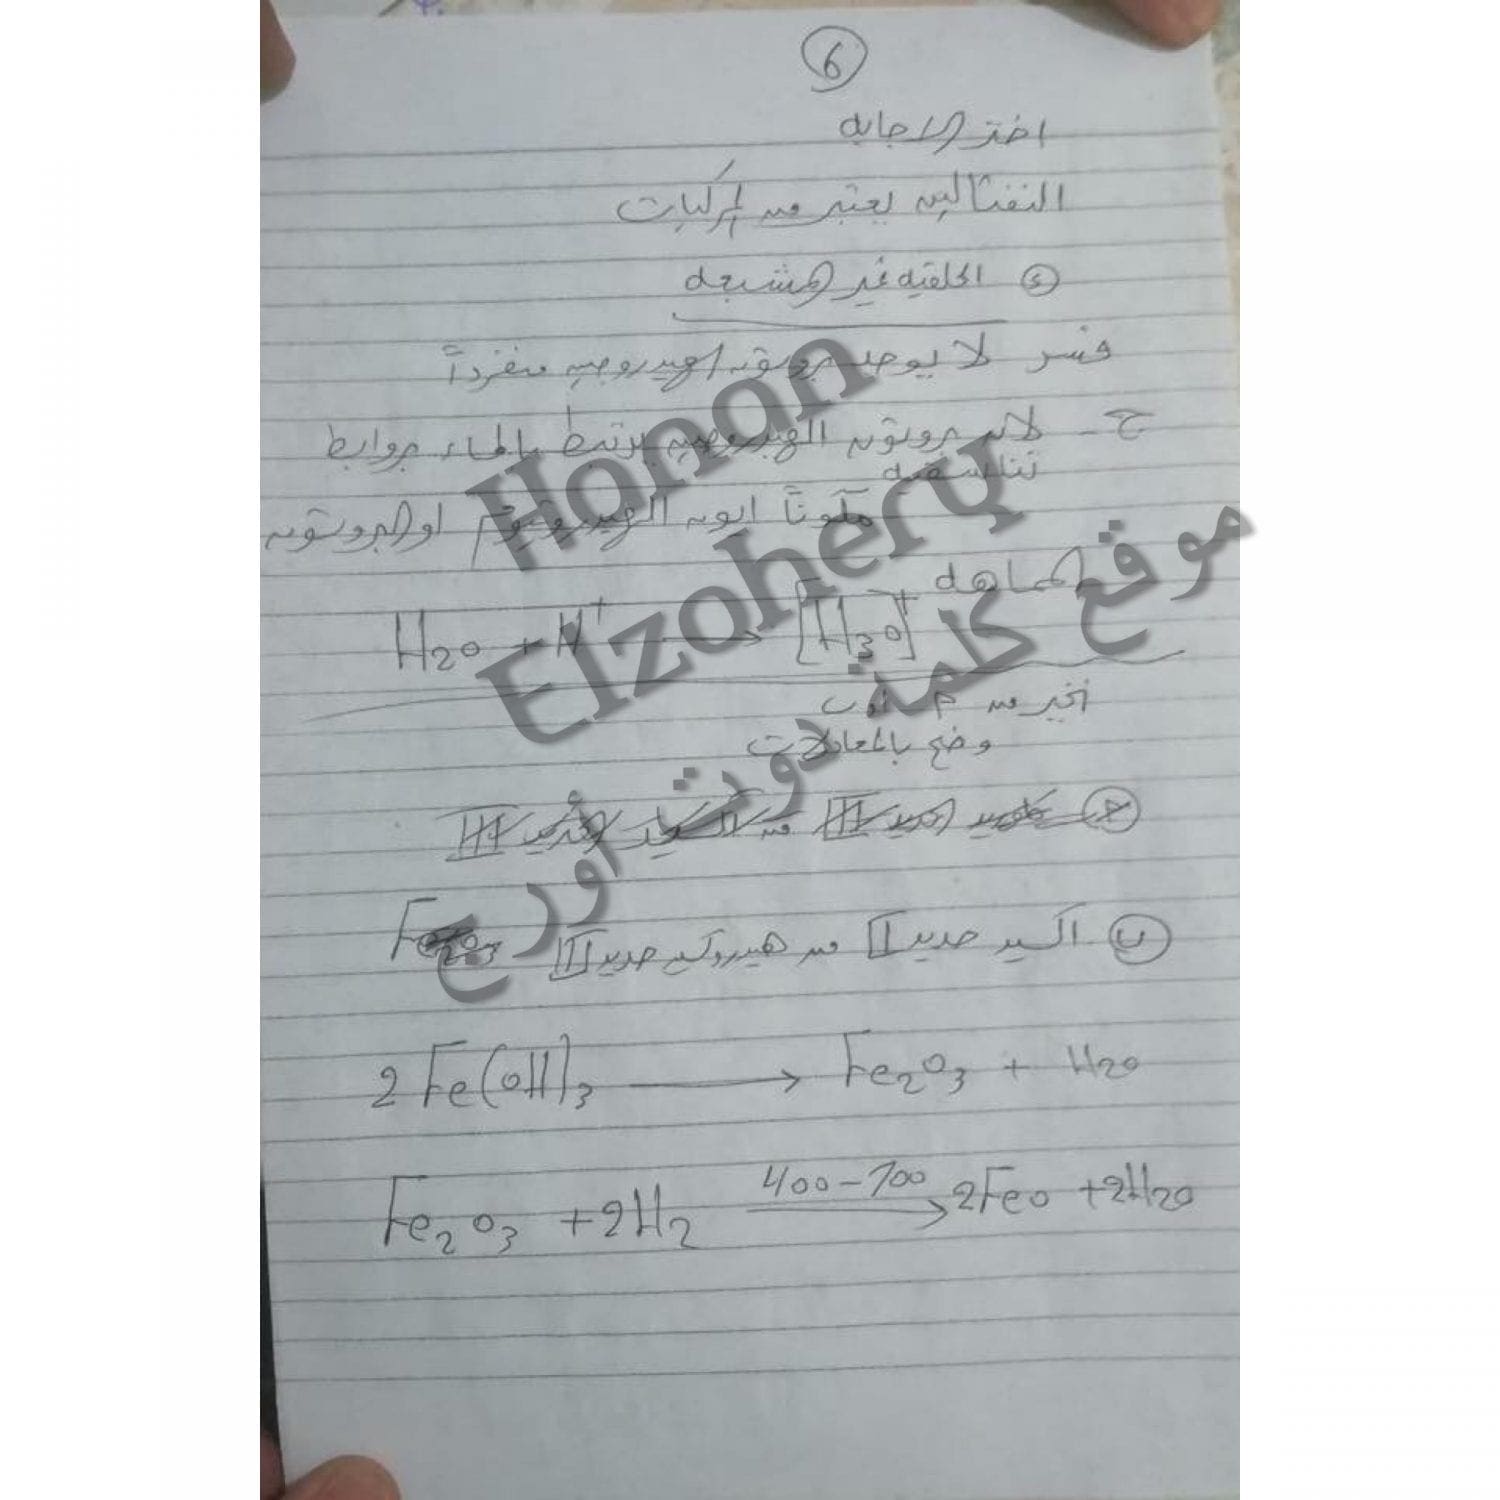 6
اختر الاجابه
النفثالين يعتبر من المركبات
د الحلقيه غير المشبعه
فسر لا يوجد بروتون الهيدروجين منفرداً
ج- لان بروتون الهيدروجين يرتبط بالماء بروابط
تناسقيه
مكوناً ايون الهيدرونيوم او البروتون
المماهه
H2O + H+ → [H3O]+
تخير من أ او ب
وضح بالمعادلات
ب اكسيد حديد II من هيدروكسيد حديد III
2 Fe(OH)3 → Fe2O3 + H2O
Fe2O3 + 2H2 400-700 → 2FeO + 2H2O
Hanan
Elzohery
موقع كلمة دوت اورج